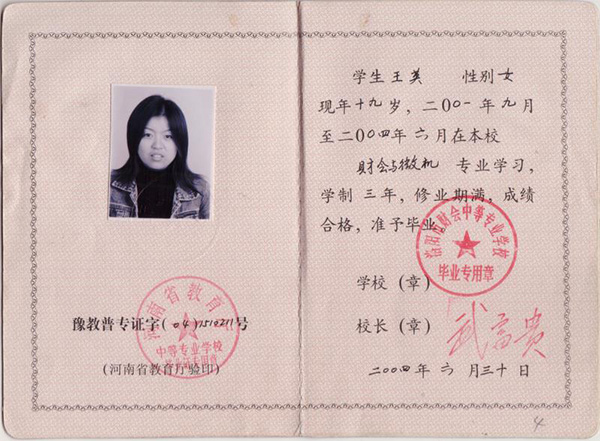 豫教普专证字(04)1510211号
(河南省教育厅验印)
河南省教育厅
中等专业学校
学生王英 性别女
现年十九岁,二〇〇一年九月
至二〇〇四年六月在本校
财会与微机 专业学习,
学制三年,修业期满,成绩
合格,准予毕业。
财会中等专业学校
毕业专用章
学校(章)
校长(章)
武富贵
二〇〇四年六月三十日
4